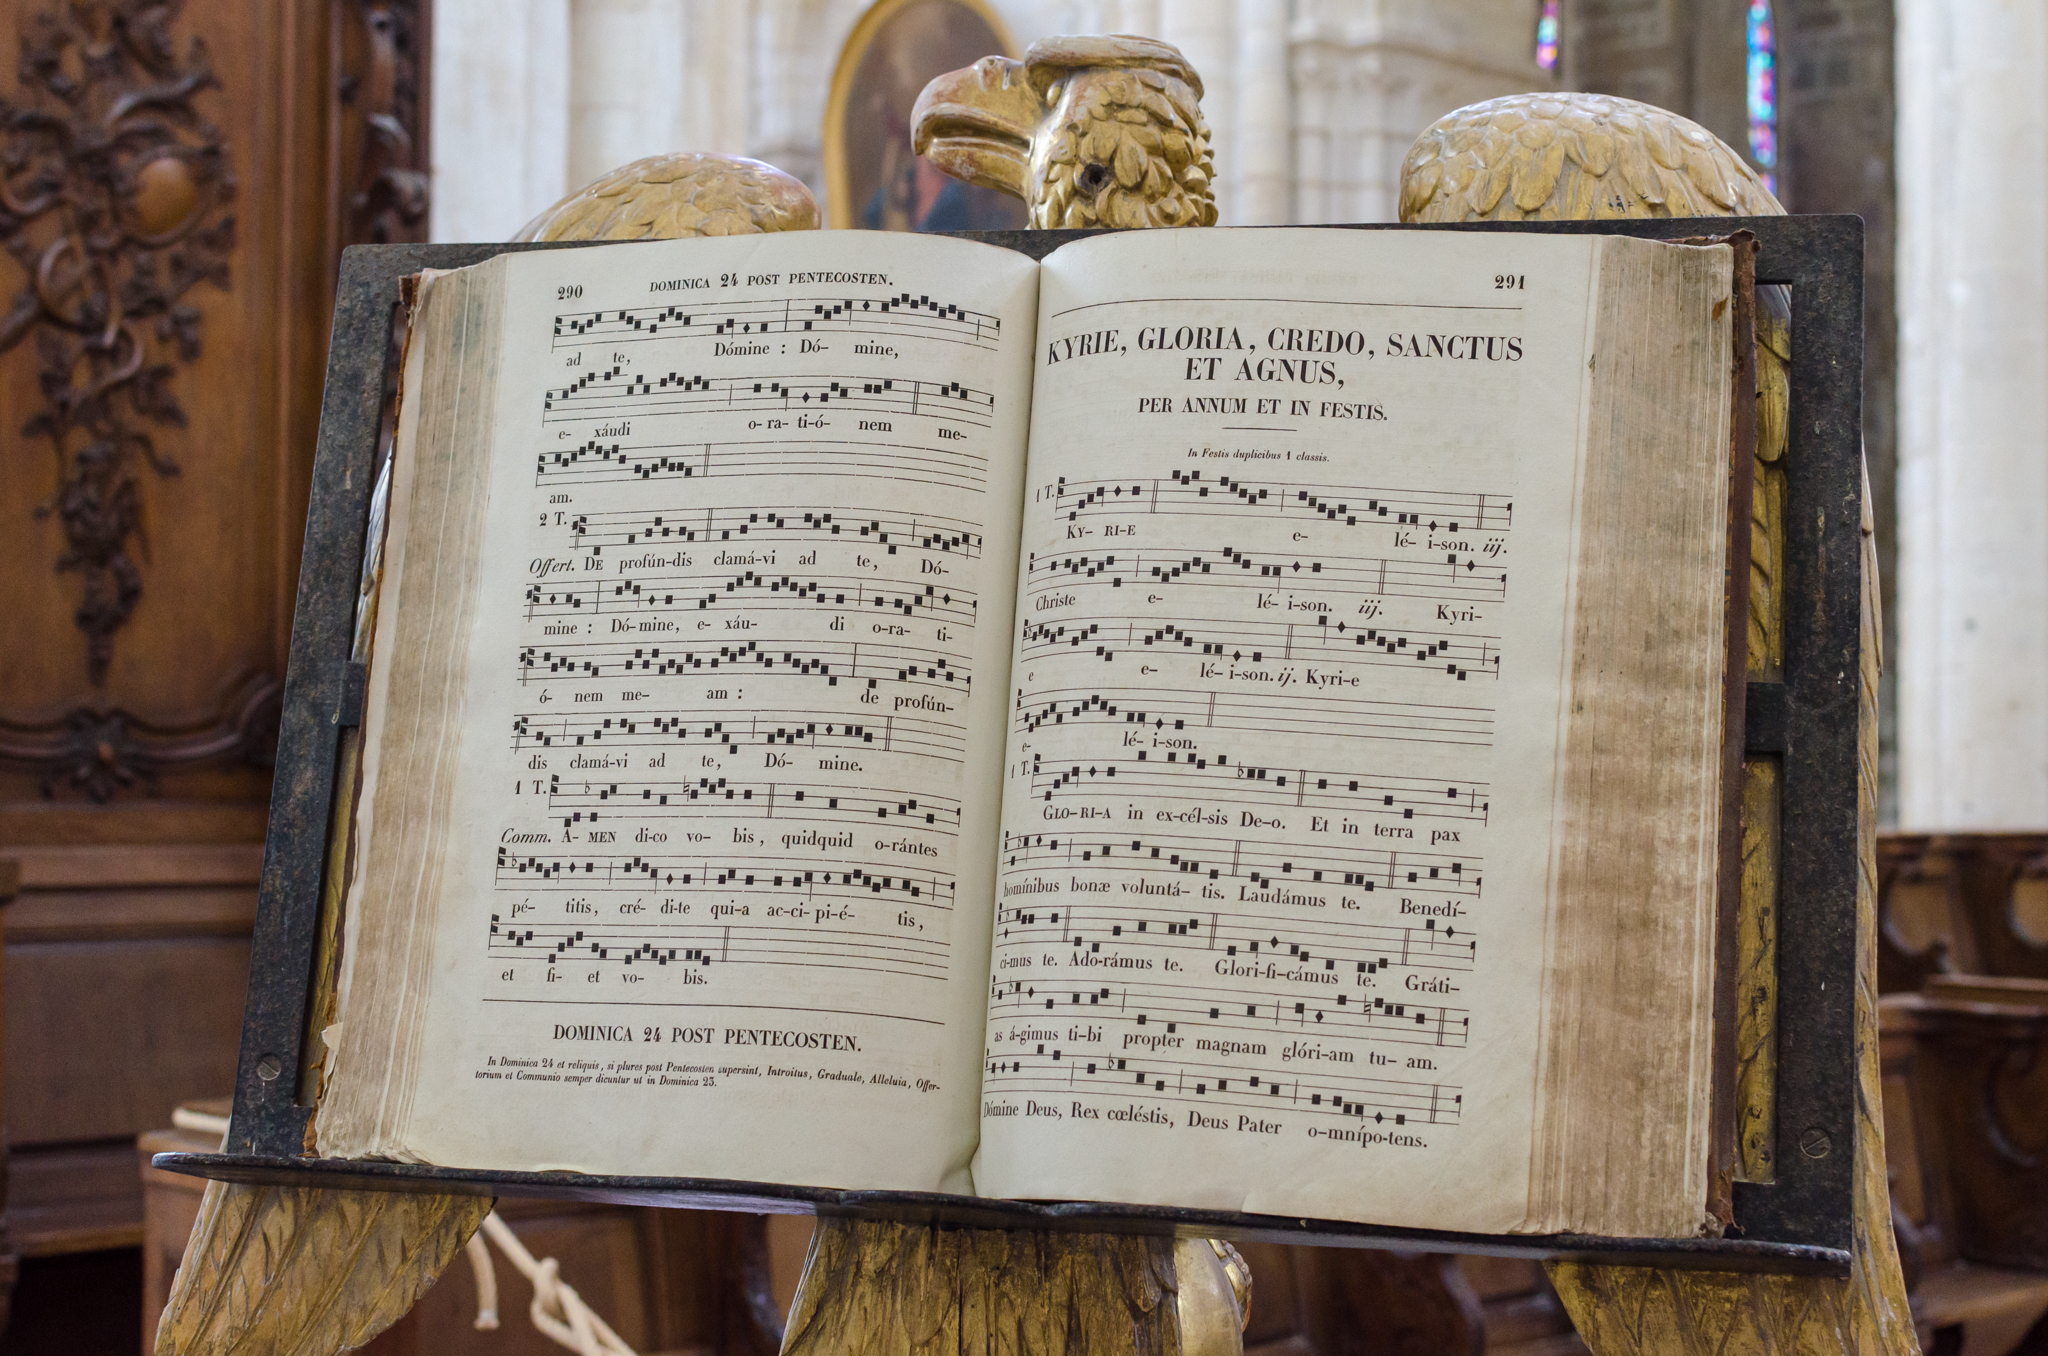 290 DOMINICA 24 POST PENTECOSTEN.
ad te, Dómine : Dó- mine,
e- xáudi o- ra- ti-ó- nem me-
am.
2 T.
Offert. DE profún-dis clamá-vi ad te, Dó-
mine : Dó-mine, e- xáu- di o-ra- ti-
ó- nem me- am : de profún-
dis clamá-vi ad te, Dó- mine.
1 T.
Comm. A- MEN di-co vo- bis, quidquid o-rántes
pé- titis, cré- di-te qui-a ac-ci-pi-é- tis,
et fi- et vo- bis.
DOMINICA 24 POST PENTECOSTEN.
In Dominica 24 et reliquis, si plures post Pentecosten supersint, Introitus, Graduale, Alleluia, Offer-
torium et Communio semper dicuntur ut in Dominica 23.
291
KYRIE, GLORIA, CREDO, SANCTUS
ET AGNUS,
PER ANNUM ET IN FESTIS.
In Festis duplicibus 1 classis.
1 T.
KY- RI-E e- lé- i-son. iij.
Christe e- lé- i-son. iij. Kyri-
e e- lé- i-son. ij. Kyri-e
e- lé- i-son.
1 T.
GLO-RI-A in ex-cél-sis De-o. Et in terra pax
homínibus bonæ voluntá- tis. Laudámus te. Benedí-
ci-mus te. Ado-rámus te. Glori-fi-cámus te. Gráti-
as á-gimus ti-bi propter magnam glóri-am tu- am.
Dómine Deus, Rex cœléstis, Deus Pater o-mnípo-tens.